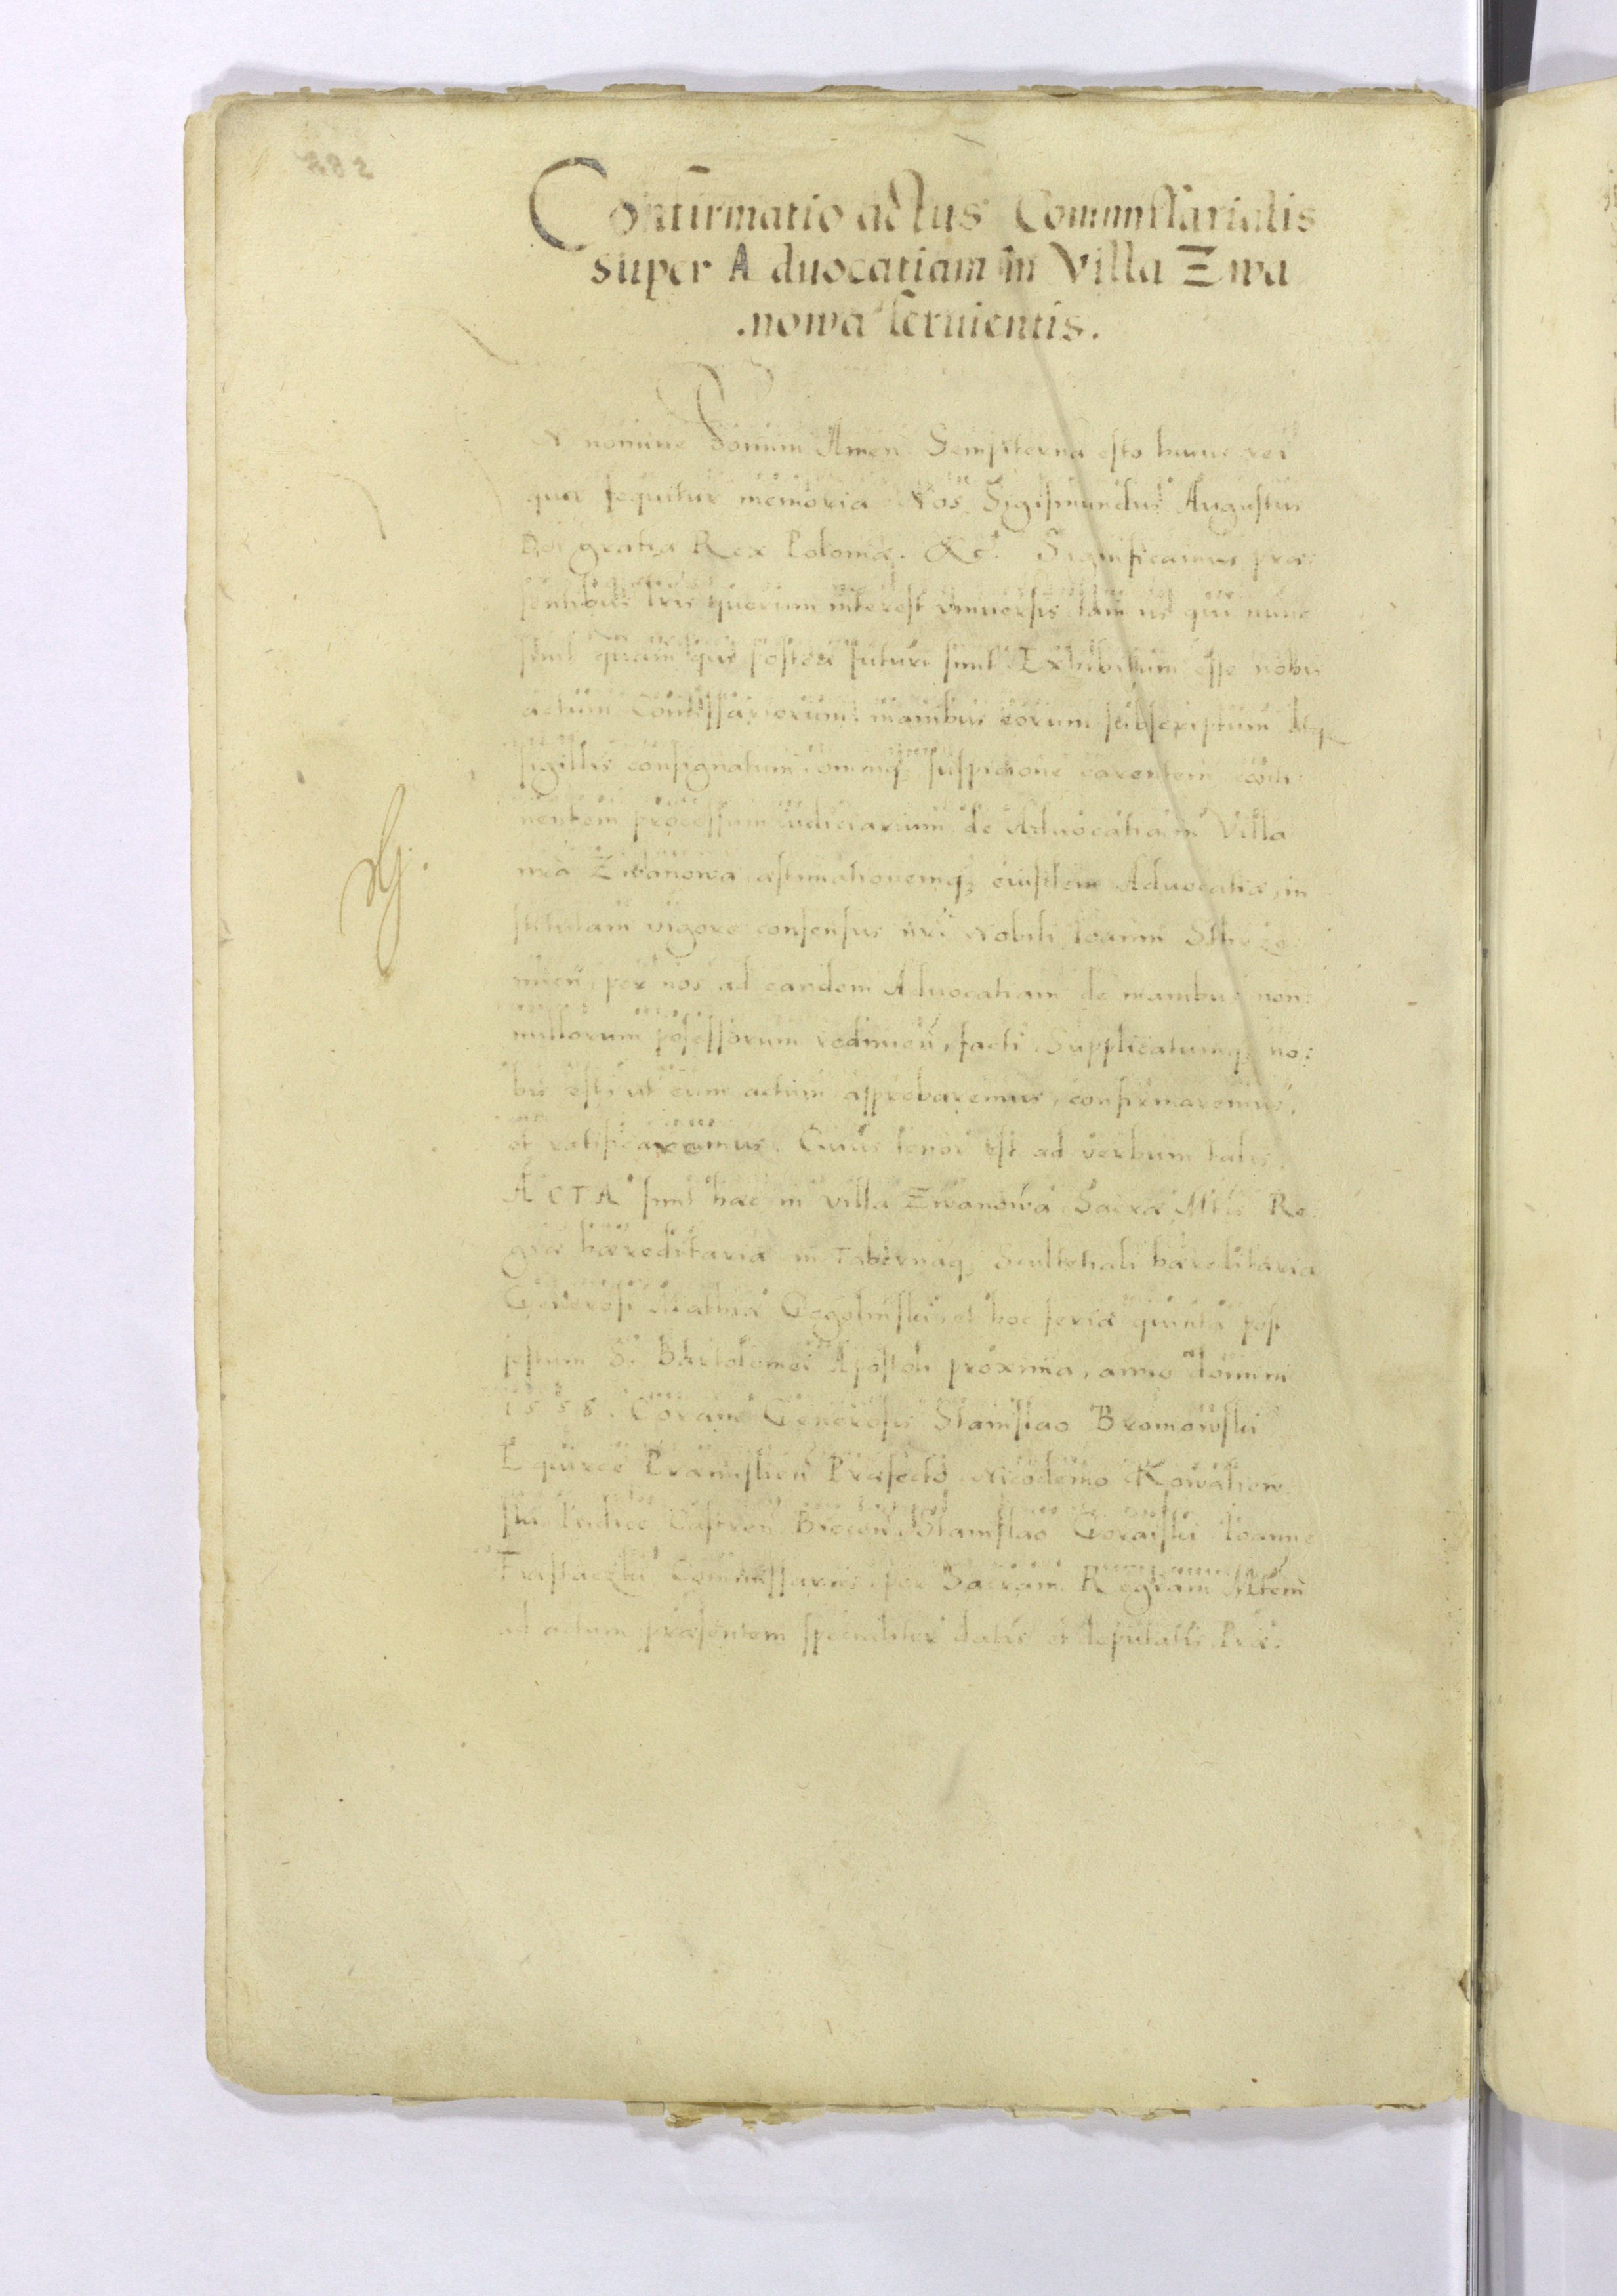 Confirmatio actus Commissarialis
super Aduocatiam in Villa Zwa
.nowa seruientis.
nomine Domini Amen. Sempiterna esto huius rei
quæ sequitur memoria. Nos Sigismundus Augustus
Dei gratia Rex Poloniæ. &c. Significamus præ
sentibus lris quorum interest vniuersis tam iis qui nunc
sunt quam qui postea futuri sunt Exhibitum esse nobis
actum Comissariorum manibus eorum subscriptum
sigillis consignatum, omniq; suspicione carentem conti
nentem processum iudiciarium de Aduocatia in Villa
nra Zwanowa æstimationemq; eiusdem Aduocatiæ, in
stitutam vigore consensus nri Nobili Ioanni
per nos ad eandem Aduocatiam de manibus non:
nullorum posessorum redimen, facti Supplicatumq; no:
bis est, ut eum actum approbaremus, confirmaremus,
et ratificaremus. Cuius tenor est ad verbum talis.
ACTA sunt hæc in villa Zwanowa Sacræ Mtis Re
giæ hæreditaria in Tabernaq; Scultetiali hæreditaria
Generosi Mathiæ et hoc feria quinta post
festum S. Bartolomei Apostoli proxima, anno domini
1558. Coram Generosis Stanislao Bromowski
Præmislien Præfecto Nicodemo
ski Iudice Castren Biecen, Stanislao Ioanne
Comissariis per Sacram Regiam Mtem
ad actum præsentem specialiter datis et deputatis Præ: